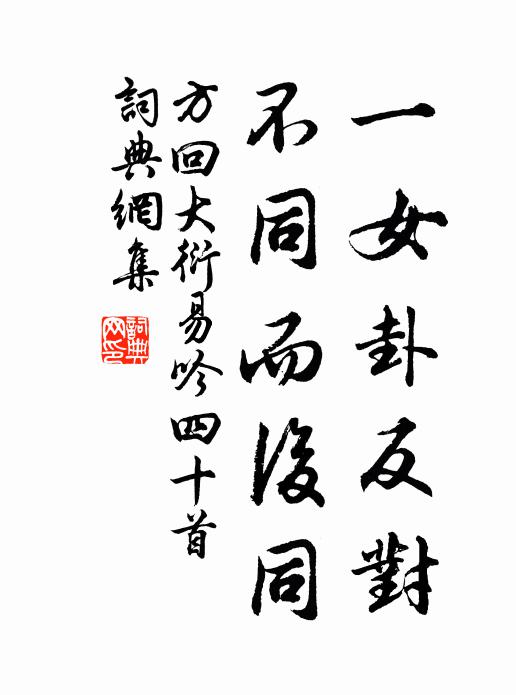 一女卦反對
不同而後同
方回大衍易吟四十首
詞典網集
詞典
网印